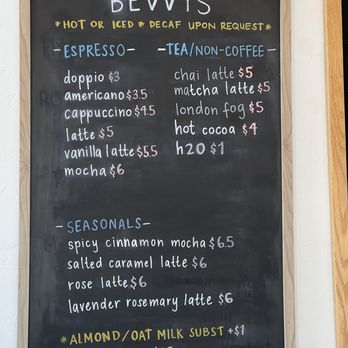 BEVVIS
*HOT OR ICED * DECAF UPON REQUEST*
-ESPRESSO-
doppio $3
americano $3.5
cappuccino $4.5
latte $5
vanilla latte $5.5
mocha $6
-TEA/NON-COFFEE-
chai latte $5
matcha latte $5
london fog $5
hot cocoa $4
h20 $1
-SEASONALS-
spicy cinnamon mocha $6.5
salted caramel latte $6
rose latte $6
lavender rosemary latte $6
*ALMOND/OAT MILK SUBST +$1